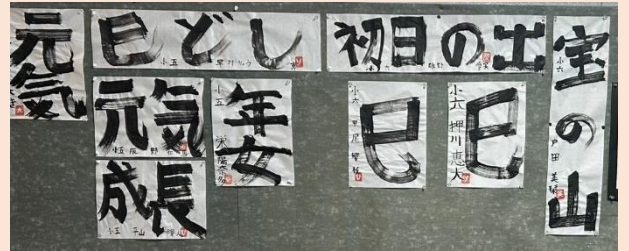 元気
巳どし
小五
初日の出
小六
宝の山
小六 戸田
元気
小五
年女
小五
巳
小六
巳
小六 押川 恵大
成長
小五 平山